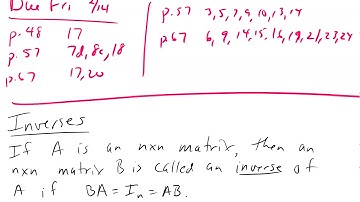 Due Fri 2/14
p.48 17
p.57 7d, 8c, 18
p.67 17, 20
p.57 3, 5, 7, 9, 10, 13, 14
p.67 6, 9, 14, 15, 16, 19, 21, 23, 24
Inverses
If A is an nxn matrix, then an
nxn matrix B is called an inverse of
A if BA = In = AB.